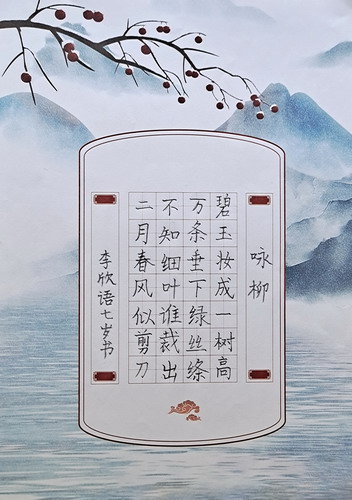 咏柳
碧玉妆成一树高
万条垂下绿丝绦
不知细叶谁裁出
二月春风似剪刀
李欣语七岁书